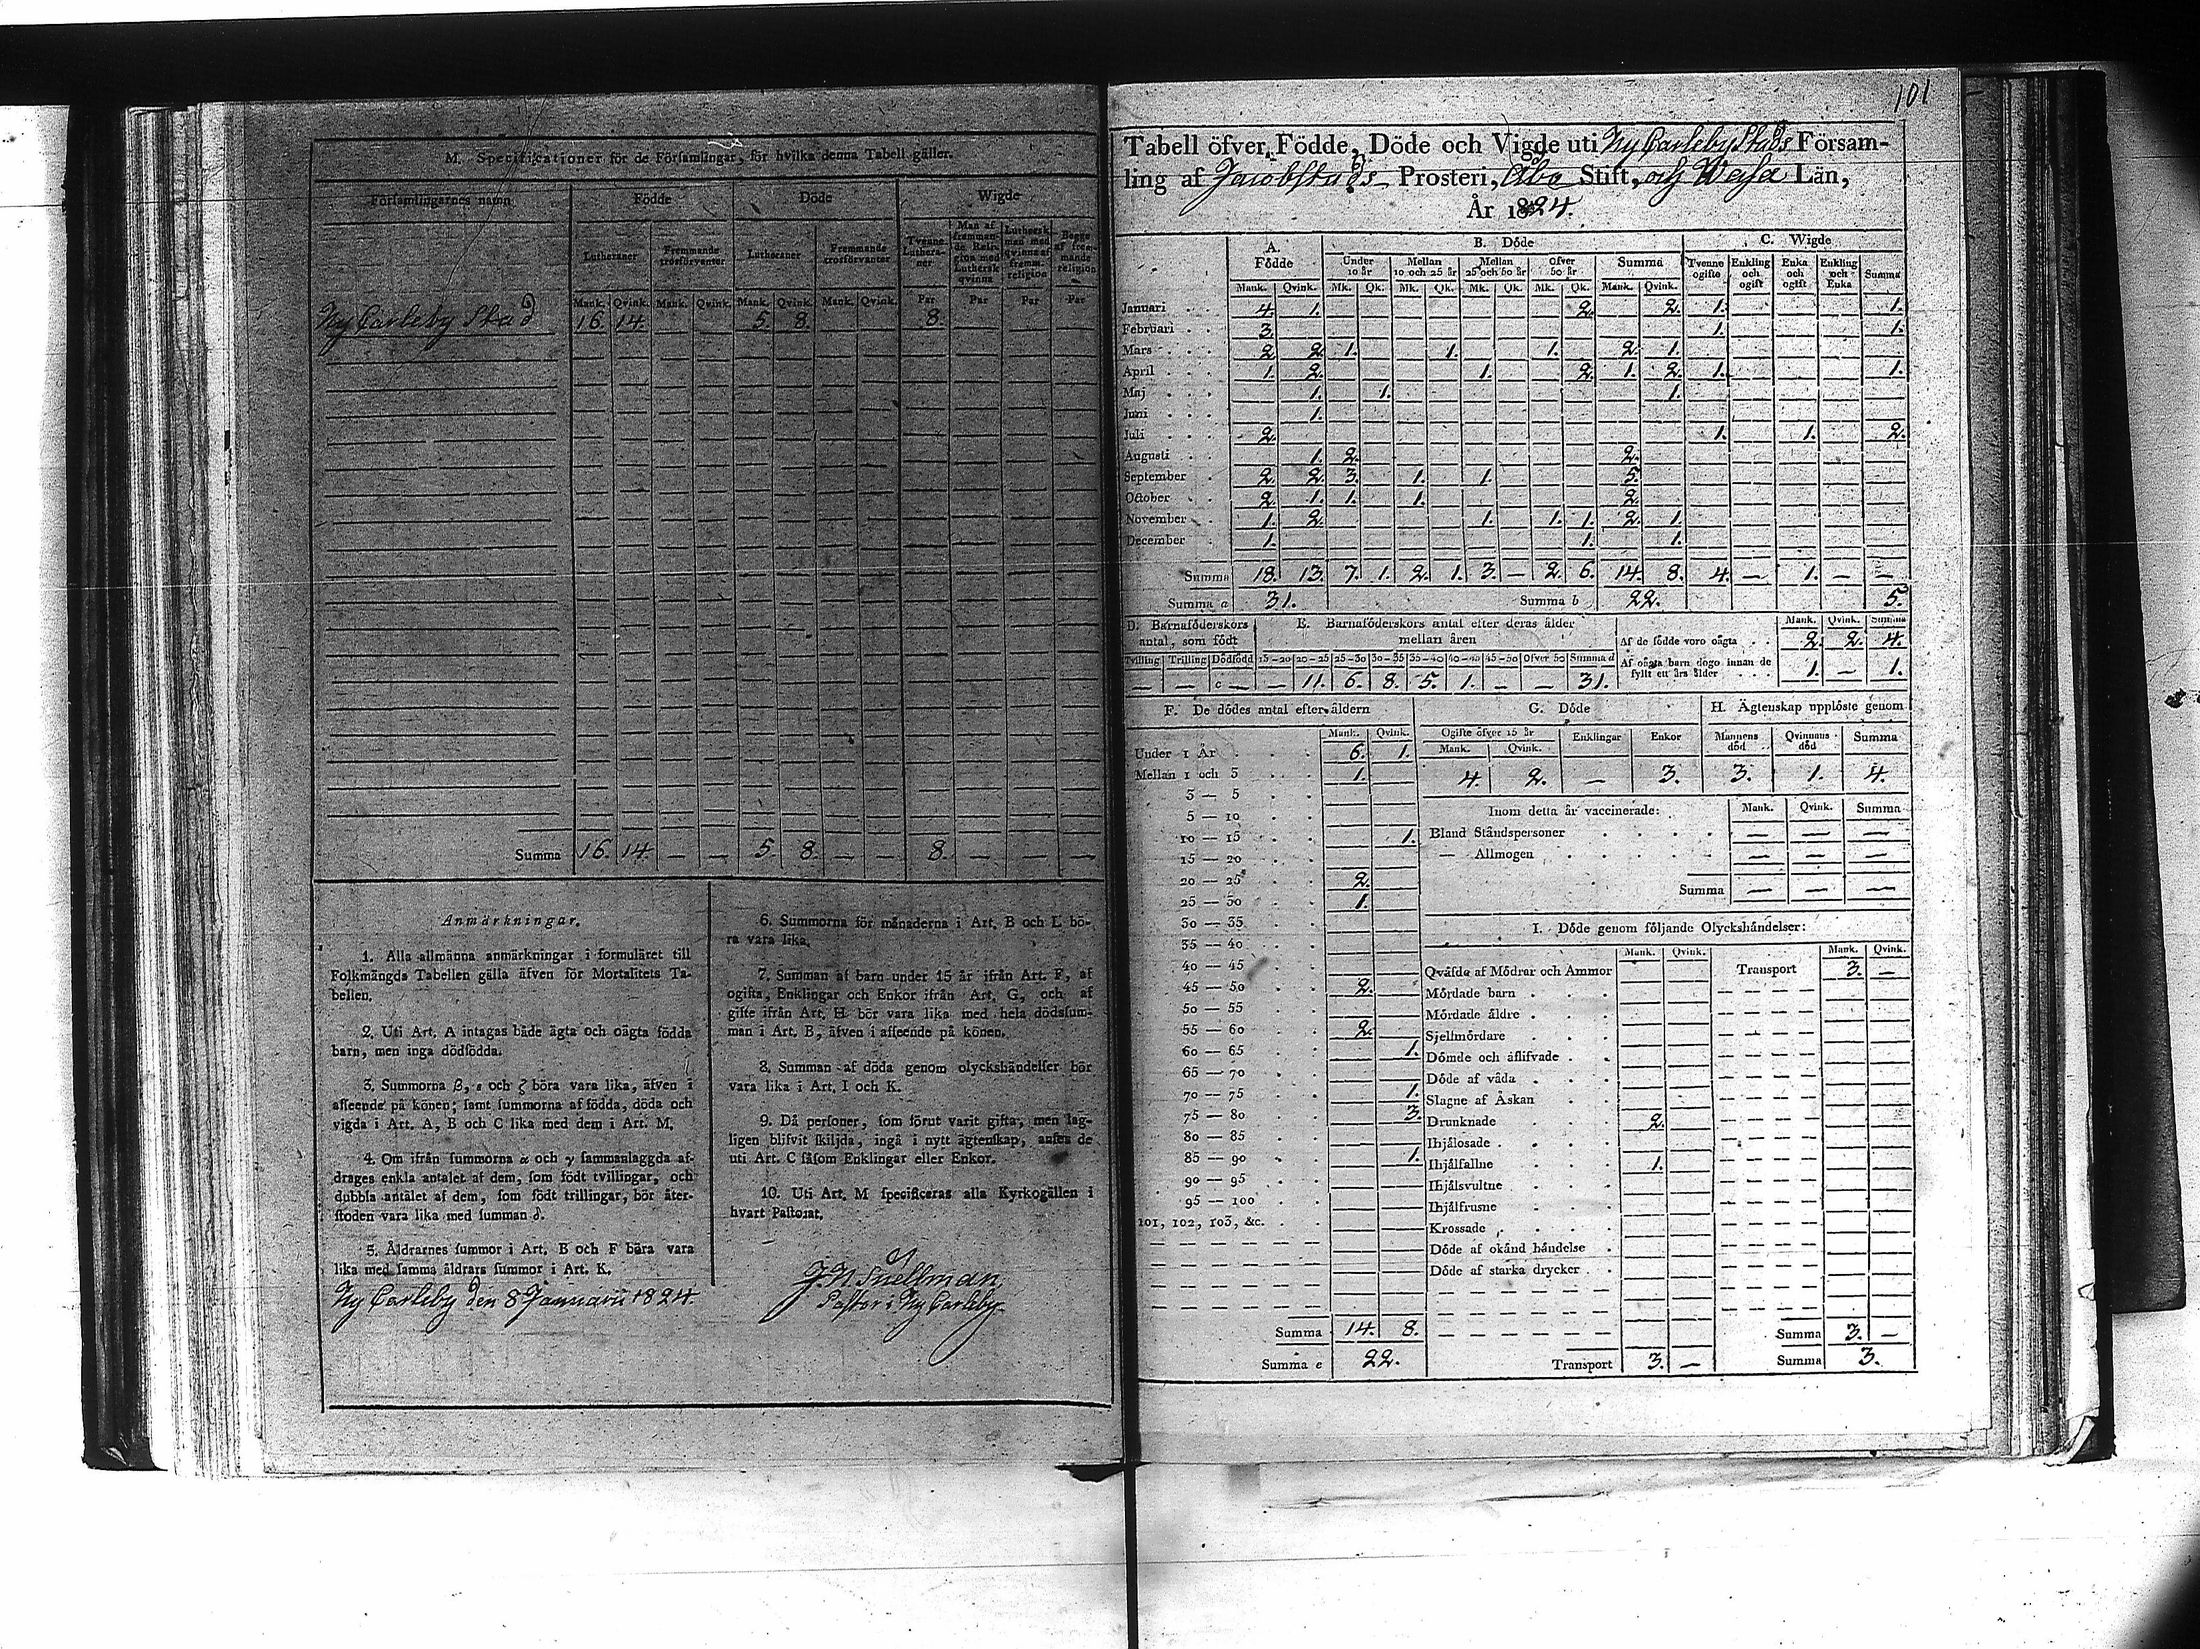 M. Specificationer för de Församlingar, för hvilka denna Tabell gäller.
Församlingarnes namn | Födde | Döde | Wigde
Lutheraner | Fremmande trosförvanter | Lutheraner | Fremmande trosförvanter | Tvenne Lutheraner | Man af fremmande Religion med Luthersk qvinna | Luthersk man med qvinna af fremm. religion | Begge af fremmande religion
Mank. Qvink. Mank. Qvink. Mank. Qvink. Mank. Qvink. Par Par Par Par
Ny Carleby Stad 16. 14. — — 5. 8. — — 8. — — —
Summa 16. 14. — — 5. 8. — — 8. — — —
Anmärkningar.
1. Alla allmänna anmärkningar i formuläret till
Folkmängds Tabellen gälla äfven för Mortalitets Ta-
bellen.
2. Uti Art. A intagas både ägta och oägta födda
barn, men inga dödfödda.
3. Summorna β, ε och ζ böra vara lika, äfven i
afseende på könen; samt summorna af födda, döda och
vigda i Art. A, B och C lika med dem i Art. M.
4. Om ifrån summorna α och γ sammanlaggda af-
drages enkla antalet af dem, som födt tvillingar, och
dubbla antalet af dem, som födt trillingar, bör åter-
stoden vara lika med summan δ.
5. Åldrarnes summor i Art. B och F böra vara
lika med samma åldrars summor i Art. K.
Ny Carleby den 8 Januarii 1824.
6. Summorna för månaderna i Art. B och L bö-
ra vara lika.
7. Summan af barn under 15 år ifrån Art. F, af
ogifta, Enklingar och Enkor ifrån Art. G, och af
gifte ifrån Art. H bör vara lika med hela dödssum-
man i Art. B, äfven i afseende på könen.
8. Summan af döda genom olyckshändelser bör
vara lika i Art. I och K.
9. Då personer, som förut varit gifta, men lag-
ligen blifvit skiljda, ingå i nytt ägtenskap, anses de
uti Art. C såsom Enklingar eller Enkor.
10. Uti Art. M specificeras alla Kyrkogällen i
hvart Pastorat.
J. N. Snellman
Pastor i Ny Carleby
101
Tabell öfver Födde, Döde och Vigde uti Ny Carleby Stads Försam-
ling af Jacobstads Prosteri, Åbo Stift, och Wasa Län,
År 1824.
A. Födde | B. Döde | C. Wigde
Under 10 år | Mellan 10 och 25 år | Mellan 25 och 50 år | Öfver 50 år | Summa | Tvenne ogifte | Enkling och ogift | Enka och ogift | Enkling och Enka | Summa
Mank. Qvink. Mk. Qk. Mk. Qk. Mk. Qk. Mk. Qk. Mank. Qvink.
Januari 4. 1. 2. 2. 1. 1.
Februari 3. 1. 1.
Mars 2. 2. 1. 1. 1. 2. 1.
April 1. 2. 1. 2. 1. 2. 1. 1.
Maj 1. 1. 1.
Juni 1.
Juli 2. 1. 1. 2.
Augusti 1. 2. 2.
September 2. 2. 3. 1. 1. 5.
October 2. 1. 1. 1. 2.
November 1. 2. 1. 1. 1. 2. 1.
December 1. 1. 1.
Summa 18. 13. 7. 1. 2. 1. 3. — 2. 6. 14. 8. 4. — 1. — —
Summa a 31. Summa b 22. 5.
D. Barnaföderskors antal, som födt | E. Barnaföderskors antal efter deras ålder mellan åren | Mank. Qvink. Summa
Tvilling Trilling Dödfödd 15-20 20-25 25-30 30-35 35-40 40-45 45-50 Öfver 50 Summa d
— — c — — 11. 6. 8. 5. 1. — — 31.
Af de födde voro oägta 2. 2. 4.
Af oägta barn dogo innan de fyllt ett års ålder 1. — 1.
F. De dödes antal efter åldern
Mank. Qvink.
Under 1 År 6. 1.
Mellan 1 och 3 1.
3 — 5
5 — 10
10 — 15 1.
15 — 20
20 — 25 2.
25 — 30 1.
30 — 35
35 — 40
40 — 45
45 — 50 2.
50 — 55
55 — 60 2.
60 — 65 1.
65 — 70
70 — 75 1.
75 — 80 3.
80 — 85
85 — 90 1.
90 — 95
95 — 100
101, 102, 103, &c.
Summa 14. 8.
Summa e 22.
G. Döde | H. Ägtenskap upplöste genom
Ogifte öfver 15 år | Enklingar | Enkor | Mannens död | Qvinnans död | Summa
Mank. Qvink.
4. 2. — 3. 3. 1. 4.
Inom detta år vaccinerade: Mank. Qvink. Summa
Bland Ståndspersoner — — —
— Allmogen — — —
Summa — — —
I. Döde genom följande Olyckshändelser:
Mank. Qvink. Mank. Qvink.
Qväfde af Mödrar och Ammor Transport 3. —
Mördade barn
Mördade äldre
Sjelfmördare
Dömde och aflifvade
Döde af våda
Slagne af Åskan
Drunknade 2.
Ihjälosade
Ihjälfallne 1.
Ihjälsvultne
Ihjälfrusne
Krossade
Döde af okänd händelse
Döde af starka drycker
Summa 3. —
Transport 3. — Summa 3.